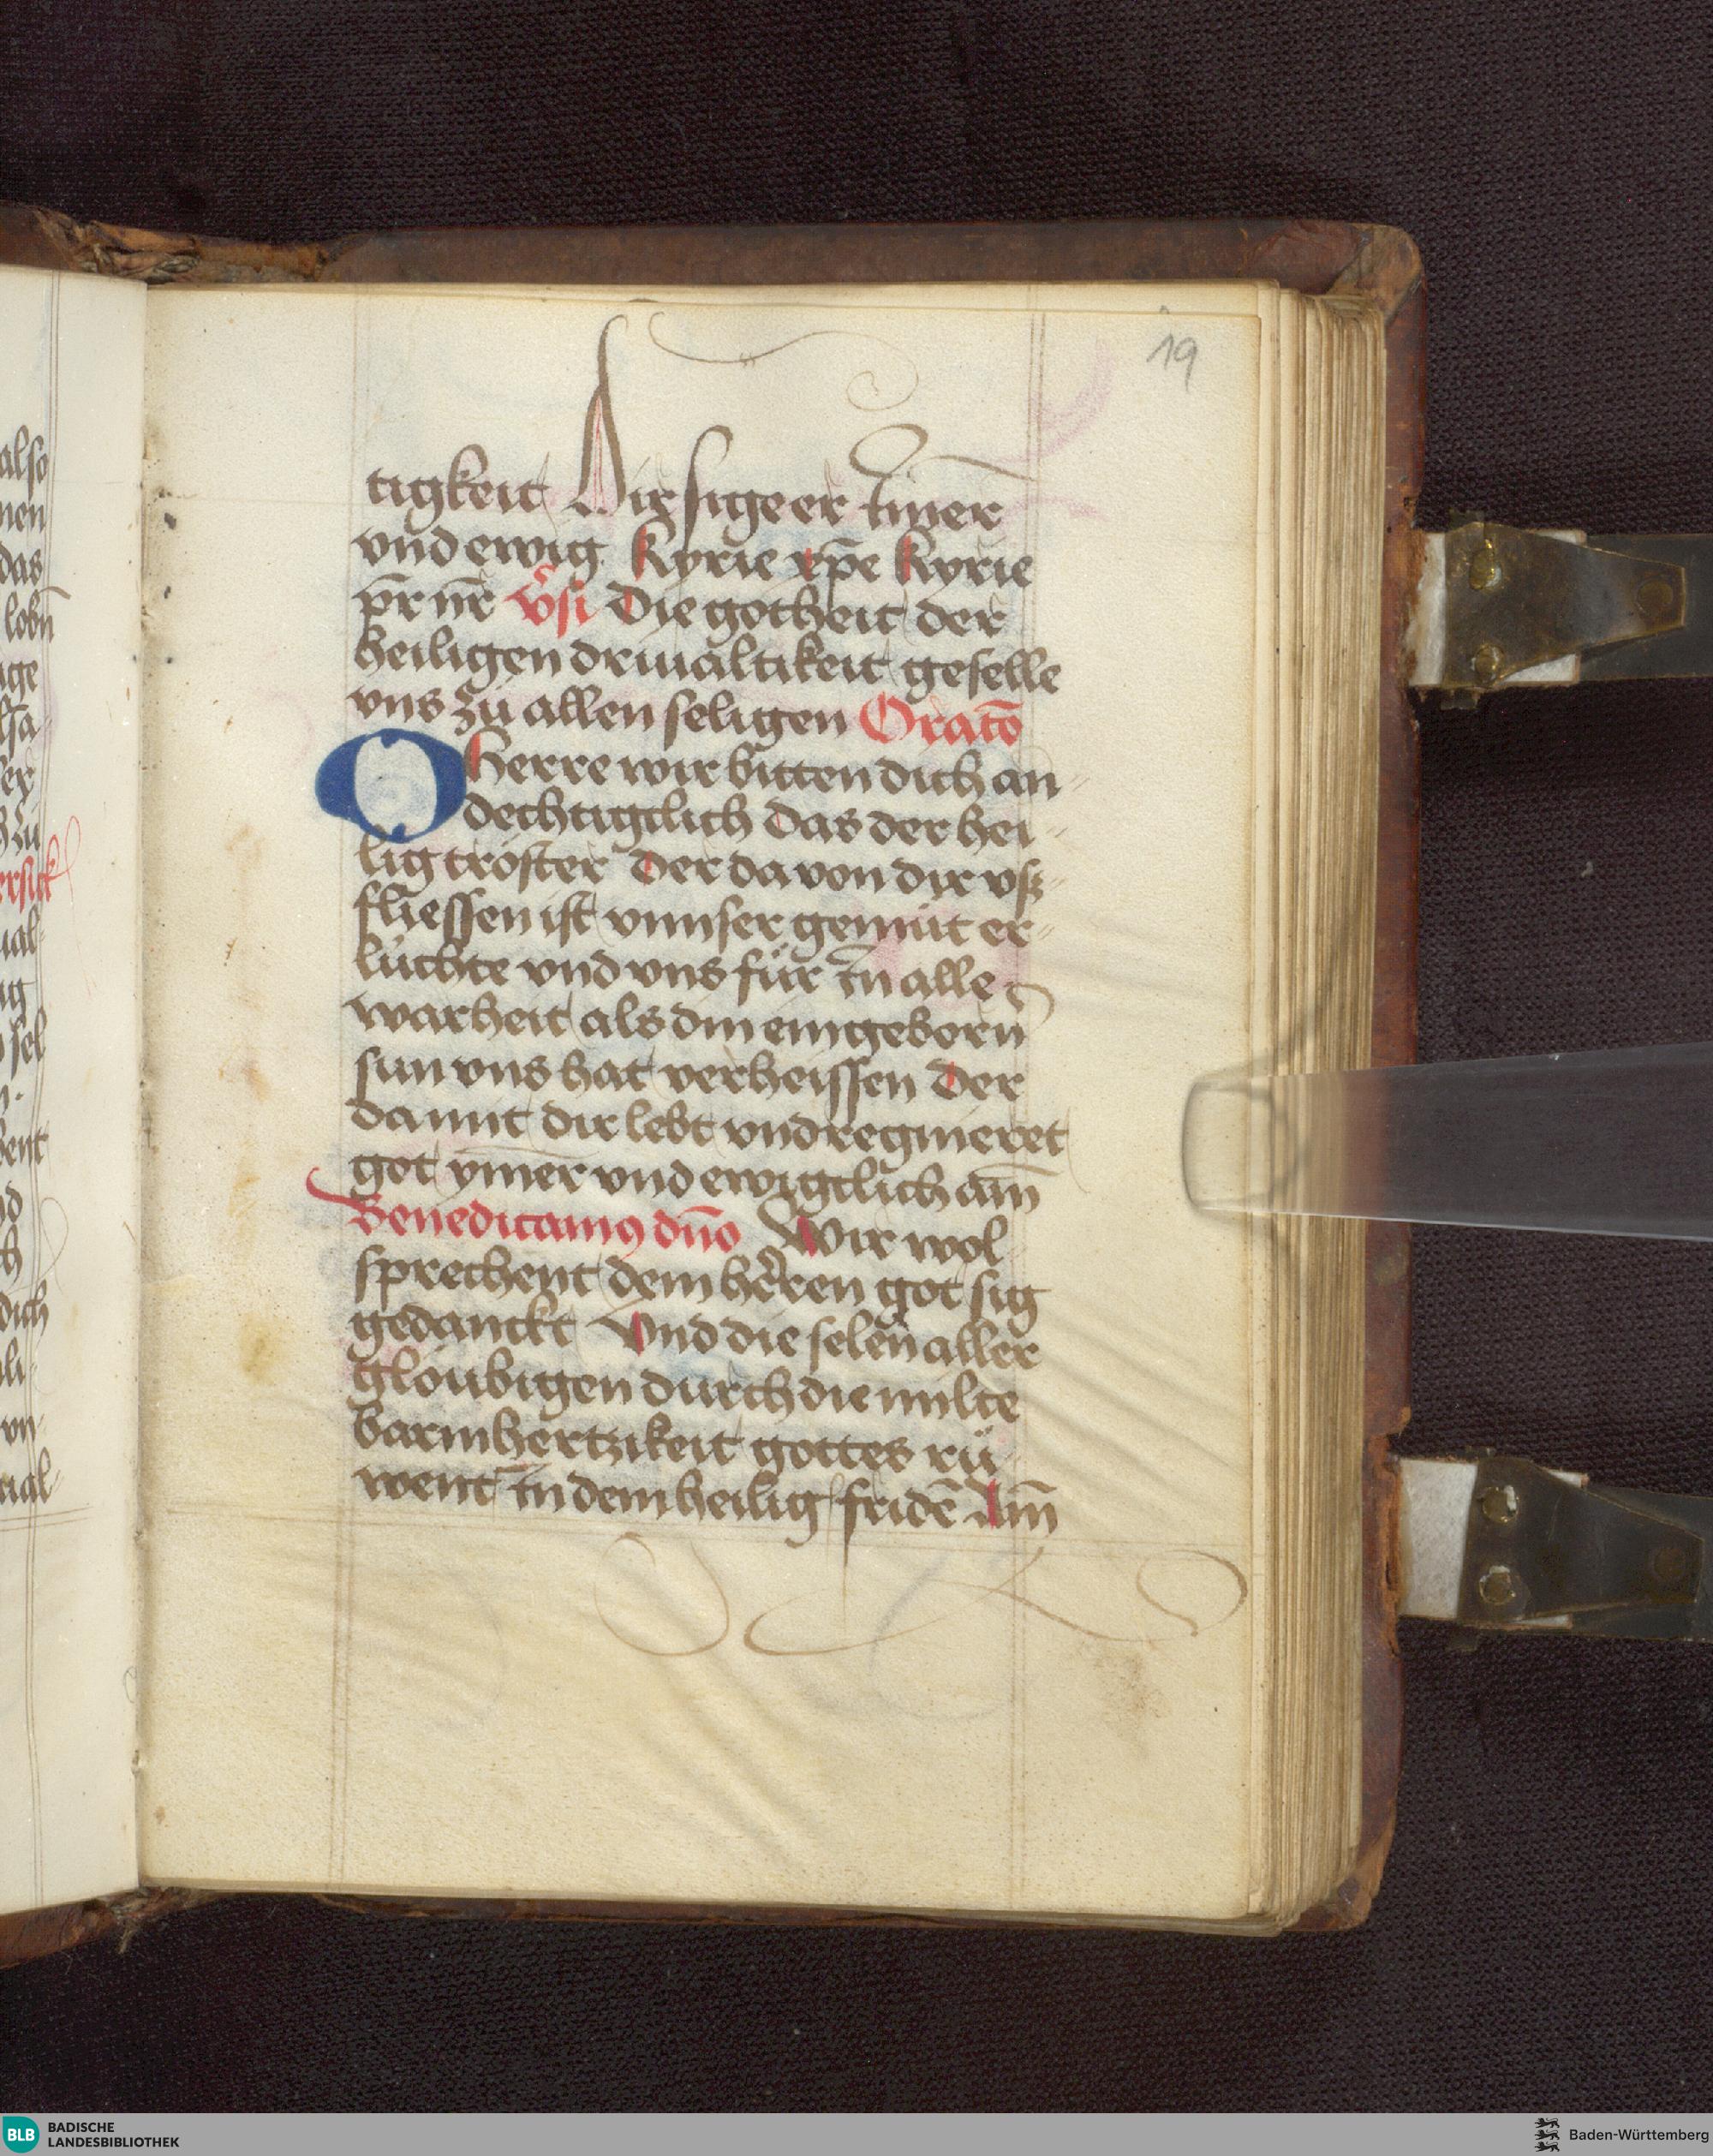 19
tigkeit Dir sige er ȳmer
vnd ewig Kyrie xp̄e Kyrie
pr̄ nr̄ v̄si Die gotheit der
heiligen driualtikeit geselle
vns zů allen seligen Oratō
O Herre wir bitten dich an-
dechtigclich Das der hei-
lig tröster Der da von dir vsz-
fliessen ist vnnser gemüt er-
lüchte vnd vns für In alle
warheit als din eingeborn
sun vns hat verheissen Der
da mit dir lebt vnd regnieret
got ym̄er vnd ewigclich am̄
Benedicamꝰ dn̄o Wir wol
sprechent dem herren got sig
gedanckt Vnd die selen aller
gloubigen durch die milte
barmhertzikeit gottes rů-
went In dem heilig fridē Am̄
also
nen
das
lobn̄
ige
ersick
ual-
ig
sel
ent
dich
li-
vn-
ual-
BLB BADISCHE
LANDESBIBLIOTHEK
Baden-Württemberg